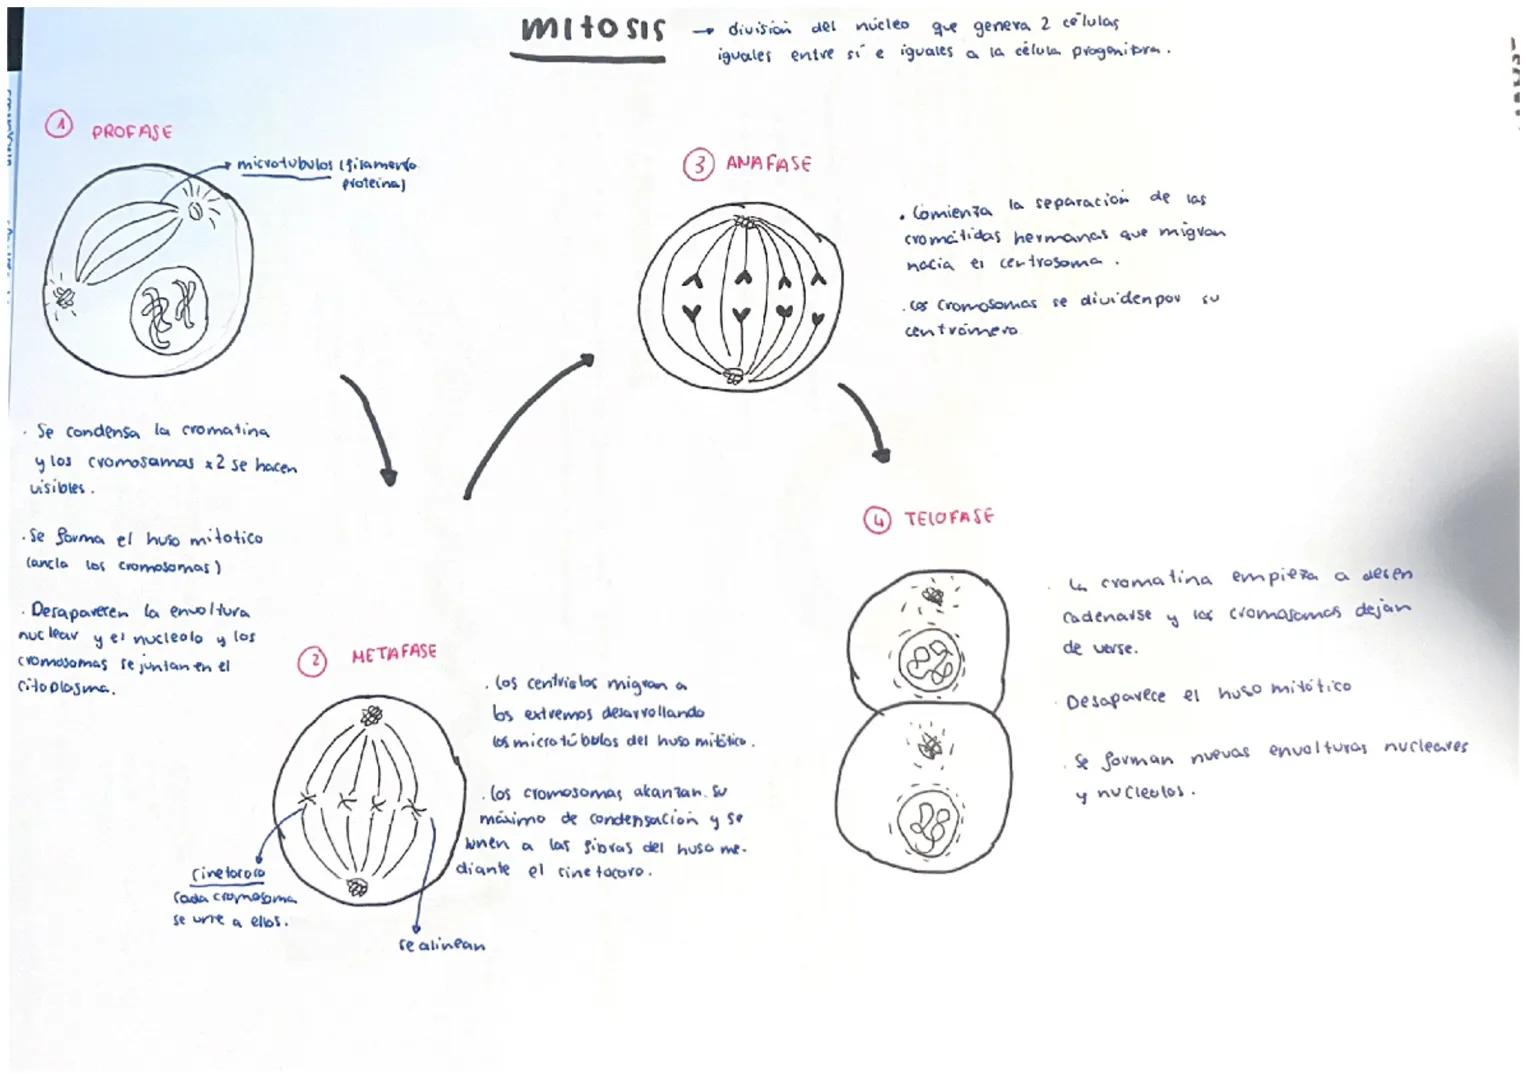 MItOSIS → división del núcleo que genera 2 células
iguales entre sí e iguales a la célula progenitora.
1 PROFASE
microtubulos (filamento
proteina)
· Se condensa la cromatina
y los cromosomas x2 se hacen
visibles.
· Se forma el huso mitotico
(ancla los cromosomas)
· Desaparecen la envoltura
nuclear y el nucleolo y los
cromosomas se juntan en el
citoplasma.
2 METAFASE
· Los centriolos migran a
los extremos desarrollando
los microtúbulos del huso mitótico.
· Los cromosomas alcanzan su
máximo de condensación y se
unen a las fibras del huso me-
diante el cinetocoro.
Cinetocoro
Cada cromosoma
se une a ellos.
se alinean
3 ANAFASE
· Comienza la separación de las
cromátidas hermanas que migran
hacia el centrosoma.
· Los cromosomas se dividen por su
centrómero
4 TELOFASE
· La cromatina empieza a desen
cadenarse y los cromosomas dejan
de verse.
· Desaparece el huso mitótico
· Se forman nuevas envolturas nucleares
y nucleolos.